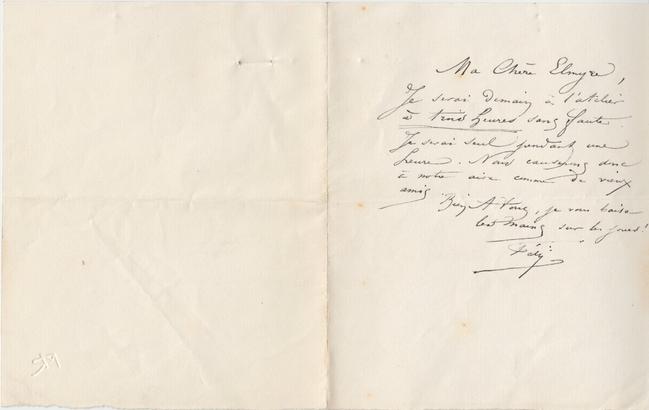 Ma Chère Elmyre,
Je serai Demain à l'atelier
à trois heures sans faute.
Je serai seul pendant une
heure. Nous causerons donc
à notre aise comme de vieux
amis
Bien A Vous, je vous baise
les mains sur les joues!